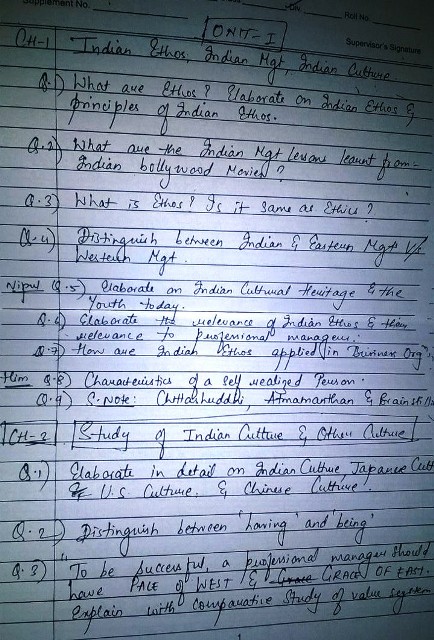 Supplement No.
Roll No.
UNIT-I
Supervisor's Signature
CH-1 Indian Ethos, Indian Mgt, Indian Culture
Q.1) What are Ethos? Elaborate on Indian Ethos &
principles of Indian Ethos.
Q.2) What are the Indian Mgt lessons learnt from
Indian bollywood Movies?
Q.3) What is Ethos? Is it same as Ethics?
Q.4) Distinguish between Indian & Eastern Mgt V/s
Western Mgt.
Nipul Q.5) Elaborate on Indian Cultural Heritage & the
Youth today.
Q.6) Elaborate the relevance of Indian Ethos & their
relevance to professional managers.
Q.7) How are Indian Ethos applied in Business Org
Him Q.8) Characteristics of a self realized Person.
Q.9) S.Note: Chittashuddhi, Atmamanthan & Brain
CH-2 Study of Indian Culture & Other Culture
Q.1) Elaborate in detail on Indian Culture Japanese Cult
U.S. Culture, & Chinese Culture.
Q.2) Distinguish between 'having' and 'being'
Q.3) "To be successful, a professional manager should
have PACE of WEST & GRACE OF EAST.
Explain with comparative Study of value system